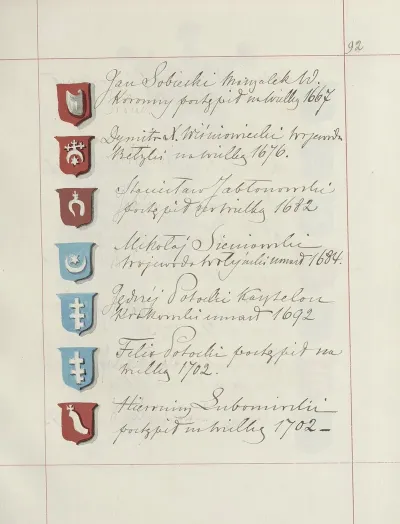 92
Jan Sobieski Marszałek W.
Koronny postąpił na wielką 1667
Dymitr X. Wiśniowiecki Wojewoda
na wielką 1676.
Stanisław Jabłonowski
postąpił na wielką 1682
Mikołaj Sieniawski
Wojewoda Wołyński umarł 1684.
Jędrzej Potocki Kasztelan
Krakowski umarł 1692
Felix Potocki postąpił na
wielką 1702.
Hieronim Lubomirski
postąpił na wielką 1702 –